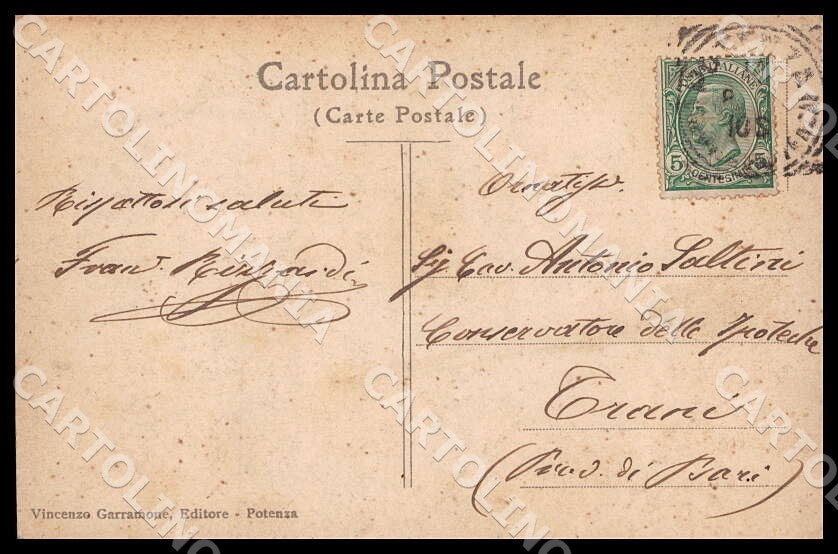 Cartolina Postale
(Carte Postale)
saluti
Ornatiss.
Sig. Cav. Antonio Saltini
Conservatore delle Ipoteche
Trani
(Prov. di Bari)
POSTE ITALIANE
5 5
CENTESIMI
Vincenzo Garramone, Editore - Potenza
CARTOLINOMANIA
CARTOLINOMANIA
CARTOLINOMANIA
CARTOLINOMANIA